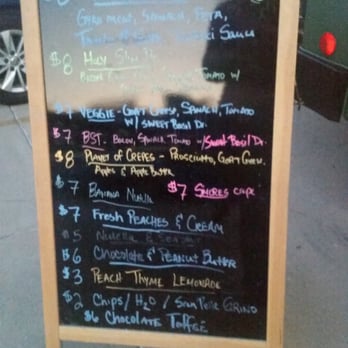 Gyro meat, Spinach, Feta,
Sauce
$8 Holy
Tomato w/
$7 Veggie - Goat Cheese, Spinach, Tomato
w/ Sweet Basil Dr.
$7 BST - Bacon, Spinach, Tomato w/ Sweet Basil Dr.
$8 Planet of Crepes - Prosciutto, Goat Cheese,
Apple & Apple Butter
$7 Banana Nutella $7 Smores crepe
$7 Fresh Peaches & Cream
$5 Nutella &
$6 Chocolate & Peanut Butter
$3 Peach Thyme Lemonade
$2 Chips / H2O / San Pelle Grino
$6 Chocolate Toffee